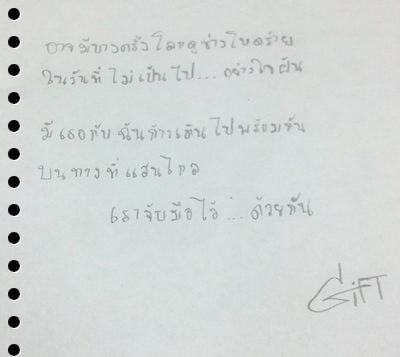 อาจมีบางครั้งโลกดูช่างโหดร้าย
ในวันที่ไม่เป็นไป... อย่างใจฝัน
มีเธอกับฉันก้าวเดินไปพร้อมกัน
บนทางที่แสนไกล
เราจับมือไว้... ด้วยกัน
GiFT